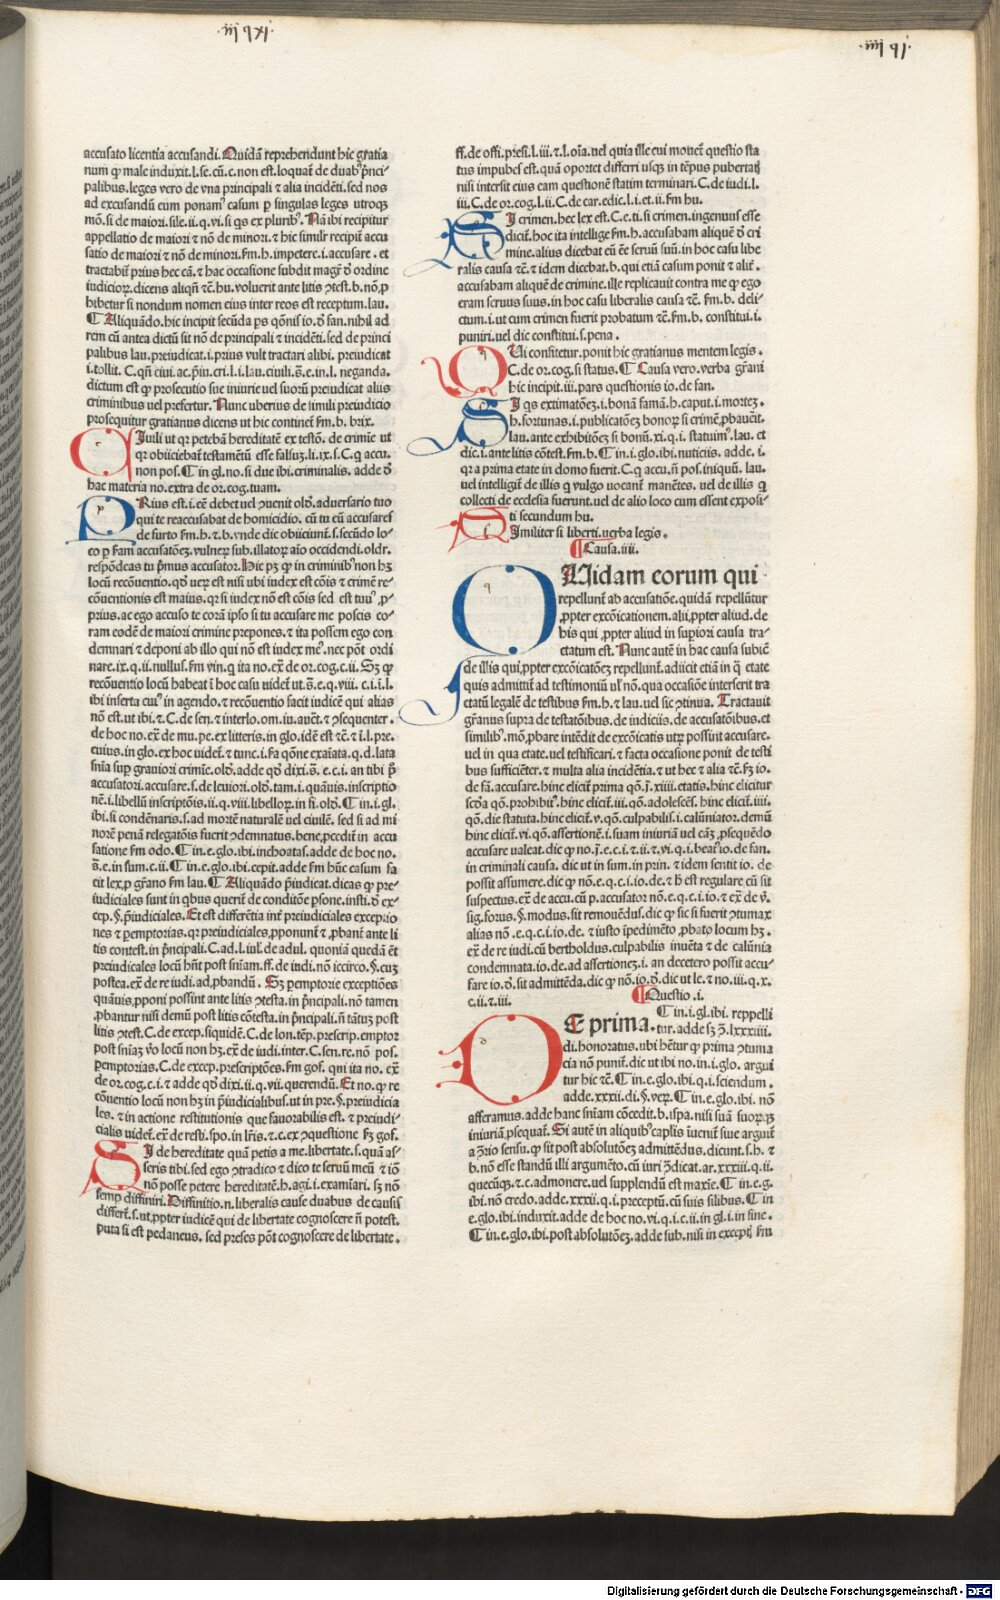 accusato licentia accusandi. Quidā reprehendunt hic gratia
num ꝙ male induxit. l. se. cū. c. non est. loquať de duabꝰ p̄nci
palibus. leges vero de vna principali ⁊ alia incidēti. sed nos
ad excusandū eum ponamꝰ casum ꝑ singulas leges utroqꝫ
mō. si de maiori. sile. ii. q. vi. si qs ex pluribꝰ. Nā ibi recipitur
appellatio de maiori ⁊ nō de minori. ⁊ hic similr̄ recipiť accu
satio de maiori ⁊ nō de minori. fm. h. impetere. i. accusare. et
tractabiť prius hec cā. ⁊ hac occasione subdit magr̄ ð ordine
iudicioꝝ. dicens aliqn̄ ⁊c̄. hu. voluerit ante litis ꝯtest. b. nō. ꝓ
hibetur si nondum nomen eius inter reos est receptum. lau.
¶ Aliquādo. hic incipit secūda ps qōnis io. ð fan. nihil ad
rem cū antea dictū sit nō de principali ⁊ incidēti. sed de princi
palibus lau. preiudicat. i. prius vult tractari alibi. preiudicat
i. tollit. C. qn̄ ciui. ac. p̄in. cri. l. i. lau. ciuili. s̄. e. in. l. neganda.
dictum est ꝙ prosecutio sue iniurie uel suoꝝ preiudicat alijs
criminibus uel prefertur. Nunc uberius de simili preiudicio
prosequitur gratianus dicens ut hic continet fm. b. brix.
CIuili ut qr petebā hereditatē ex testō. de crimīe ut
qr obiiciebat testamētū esse falsuꝫ. li. ix. s. C. q accu.
non pos. ¶ in gl. no. si due ibi. criminalis. adde ð
hac materia no. extra de or. cog. tuam.
PRius est. i. cē debet uel ꝯuenit olð. aduersario tuo
qui te reaccusabat de homicidio. cū tu cū accusares
de furto fm. h. ⁊ b. vnde dic obiiciunť. s. secūdo lo-
co ꝑ fam accusatōeꝫ. vulneꝝ sub. illatoꝝ aīo occidendi. oldr.
respōdeas tu p̄mus accusator. Hic pꝫ ꝙ in criminibꝰ non hꝫ
locū recōuentio. qð ueꝝ est nisi ubi iudex est cōis ⁊ crimē re-
cōuentionis est maius. qr si iudex nō est cōis sed est tuuꝰ. ꝓ-
prius. ac ego accuso te corā ipso si tu accusare me poscis co-
ram eodē de maiori crimine prepones. ⁊ ita possem ego con
demnari ⁊ deponi ab illo qui nō est iudex meꝰ. nec pōt ordi
nare. ix. q. ii. nullus. fm vin. q ita no. ex̄ de or. cog. c. ii. Sꝫ ꝙ
recōuentio locū habeat ī hoc casu uideť ut. s̄. e. q. viii. c. i. ī. l.
ibi inserta cuiꝰ in agendo. ⁊ recōuentio facit iudicē qui alias
nō est. ut ibi. ⁊ C. de sen. ⁊ interlo. om. iu. aucť. ⁊ ꝯsequenter.
de hoc no. ex̄ de mu. pe. ex litteris. in glo. idē est ⁊c̄. ⁊ ī. l. pre-
cuius. in glo. ex hoc uideť. ⁊ tunc. i. fa qōne exaīata. q. d. lata
snīa sup grauiori crimīe. olð. adde qð dixi. s̄. e. c. i. an tibi p̄
accusatori. accusare. s. de leuiori. olð. tam. i. quāuis. inscriptio
nē. i. libellū inscriptōis. ii. q. viii. libelloꝝ. in fi. olð. ¶ in. i. gl.
ibi. si condēnaris. s. ad mortē naturalē uel ciuilē. sed si ad mi
norē penā relegatōis fuerit ꝯdemnatus. bene. ꝓcedit in accu
satione fm odo. ¶ in. e. glo. ibi inchoatas. adde de hoc no.
s̄. e. in sum. c. ii. ¶ in. e. glo. ibi. cepit. adde fm hūc casum fa
cit lex. ꝓ gr̄ano fm lau. ¶ Aliquādo p̄iudicat. dicas ꝙ pre-
iudiciales sunt in qbus querit̄ de conditōe ꝑsone. insti. ð ex-
cep. §. p̄iudiciales. Et est differētia inť preiudiciales exceptio
nes ⁊ ꝑemptorias. qr preiudiciales. ꝓponūť ⁊ ꝓbant̄ ante li
tis contest. in p̄ncipali. C. ad. l. iul. de adul. quoniā quedā ēt
preiudicales locū hn̄t post snīam. ff. de iudi. nō iccirco. §. cuꝫ
postea. ex̄ de re iudi. ad. ꝓbandū. Sꝫ ꝑemptorie exceptōes
quāuis. ꝓponi possint ante litis ꝯtesta. in p̄ncipali. nō tamen
ꝓbantur nisi demū post litis cōtesta. in p̄ncipali. n̄ tātuꝫ post
litis ꝯtest. C. de excep. siquidē. C. de lon. tēp. prescrip. emptor
post snīaꝫ ꝟo locū non hꝫ. ex̄ de iudi. inter. C. sen. re. nō pos.
ꝑemptorias. C. de excep. prescriptōes. fm gof. qui ita no. ex̄
de or. cog. c. i. ⁊ adde qð dixi. ii. q. vii. querendū. Et no. ꝙ re
cōuentio locū non hꝫ in p̄iudicialibus. ut in pre. §. preiudicia
les. ⁊ in actione restitutionis que fauorabilis est. ⁊ preiudi-
cialis uideť. ex̄ de resti. spo. in lr̄is. ⁊ c. ex ꝯquestione fꝫ gof.
SI de hereditate quā petis a me. libertatē. s. quā as-
seris tibi. sed ego ꝯtradico ⁊ dico te seruū meū ⁊ iō
nō posse petere hereditatē. h. agi. i. examīari. sꝫ nō
semꝑ diffiniri. Diffinitio. n. liberalis cause duabus de causis
differt̄. s. ut ꝓpter iudicē qui de libertate cognoscere n̄ potest.
puta si est pedaneus. sed preses pōt cognoscere de libertate.
ff. de offi. presi. l. iii. ⁊ l. oīa. uel quia ille cui mouet̄ questio sta
tus impubes est. quā oportet differri usqꝫ in tēpus pubertatꝭ
nisi intersit eius eam questionē statim terminari. C. de iudi. l.
iii. C. de or. cog. l. ii. C. de car. edic. l. i. et. ii. fm hu.
SI crimen. hec lex est. C. e. ti. si crimen. ingenuus esse
dicit̄. hoc ita intellige fm. h. accusabam aliquē ð cri
mine. alius dicebat eū ēe seruū suū. in hoc casu libe
ralis causa ⁊c̄. ⁊ idem dicebat. b. qui etiā casum ponit ⁊ alit̄.
accusabam aliquē de crimine. ille replicauit contra me ꝙ ego
eram seruus suus. in hoc casu liberalis causa ⁊c̄. fm. b. deli-
ctum. i. ut cum crimen fuerit probatum ⁊c̄. fm. b. constitui. i.
puniri. uel dic constitui. s. pena.
QUi confitetur. ponit hic gratianus mentem legis.
C. de or. cog. si status. ¶ Causa vero. verba gr̄ani
hic incipit. iii. pars questionis io. de fan.
SI qs extimatōeꝫ. i. bonā famā. h. caput. i. mortez.
h. fortunas. i. publicatōeꝫ bonoꝝ si crimē. ꝓbauerit.
lau. ante exhibitōeꝫ si bonū. xi. q. i. statuimꝰ. lau. et
dic. i. ante litis cōtest. fm. b. ¶ in. i. glo. ibi. nuticiis. adde. i.
qr a prima etate in domo fuerit. C. q accu. n̄ pos. iniquū. lau.
uel intelligit̄ de illis q̄ vulgo uocant̄ manētes. uel de illis q̄
collecti de ecclesia fuerunt. uel de alio loco cum essent exposi-
ti secundum hu.
SImiliter si liberti. uerba legis.
¶ Causa. iiii.
QUidam eorum qui
repellunt̄ ab accusatiōe. quidā repellūtur
ꝓpter excōicationem. alii. ꝓpter aliud. de
his qui ꝓpter aliud in supiori causa tra-
ctatum est. Nunc autē in hac causa subicit̄
de illis qui. ꝓpter excōicatōeꝫ repellunt̄. adiicit etiā in q̄ etate
quis admittit̄ ad testimoniū ul̄ nō. qua occasiōe interserit tra
ctatū legalē de testibus fm h. ⁊ lau. uel sic ꝯtinua. Tractauit
gr̄anus supra de testatōibus. de iudiciis. de accusatōibus. et
similibꝰ. mō. ꝓbare intēdit de excōicatis utꝝ possint accusare.
uel in qua etate. uel testificari. ⁊ facta occasione ponit de testi
bus sufficiēter. ⁊ multa alia incidētia. ⁊ ut hec ⁊ alia ⁊c̄. fꝫ io.
de fā. accusare. hinc elicit̄ prima qō. ī. xiiii. etatis. hinc elicitur
scða qō. prohibitꝰ. hinc elicit̄. iii. qō. adolescēs. hinc elicit̄. iiii.
qō. die statuta. hinc elicit̄. v. qō. culpabilis. i. calūniator. demū
hinc elicit̄. vi. qō. assertionē. i. suam iniuriā uel cāꝫ. ꝓsequēdo
accusare ualeat. dic ꝙ no. ī. e. c. i. ⁊. ii. ⁊ vi. q. i. beatꝰ. io. de fan.
in criminali causa. dic ut in sum. in prin. ⁊ idem sentit io. de
possit assumere. dic ꝙ nō. e. q. c. i. io. de. ⁊ h̄ est regulare cū sit
suspectus. ex̄ de accu. cū p. accusator nō. e. q. c. i. io. ⁊ ex̄ de ꝟ.
sig. forus. §. modus. sit remouēdus. dic ꝙ sic si fuerit ꝯtumax
alias nō. e. q. c. i. io. de. ⁊ iusto īpedimēto. ꝓbato locum hꝫ.
ex̄ de re iudi. cū bertholdus. culpabilis inuēta ⁊ de calūnia
condemnata. io. de. ad assertioneꝫ. i. an decetero possit accu-
sare io. ð. sit admittēda. dic ꝙ nō. io. ð. dic ut le. ⁊ no. iii. q. x.
c. ii. ⁊. iii.
¶ Questio. i.
DE prima. ¶ in. i. gl. ibi. reppelli
tur. adde fꝫ ꝫ̄. lxxxiiii.
di. honoratus. ubi hētur ꝙ prima ꝯtuma
cia nō punit̄. dic ut ibi no. in. i. glo. argui
tur hic ⁊c̄. ¶ in. e. glo. ibi. q. i. sciendum.
adde. xxxii. di. §. veꝝ. ¶ in. e. glo. ibi. nō
afferamus. adde hanc snīam cōcedit. b. ispa. nisi suā suoꝝqꝫ
iniuriā. ꝓsequat̄. Si autē in aliquibꝰ caplis īuenit̄ siue arguit̄
a ꝯrio sensu. ꝙ sit post absolutōeꝫ admittēdus. dicunt. s. h. ⁊
b. nō esse standū illi argumēto. cū iuri ꝯdicat. ar. xxxiii. q. ii.
quecūqꝫ. ⁊ c. admonere. uel supplendū est maxīe. ¶ in. e. g.
ibi. nō credo. adde. xxxii. q. i. preceptū. cū suis silibus. ¶ in
e. glo. ibi. induxit. adde de hoc no. vi. q. i. c. ii. in gl. i. in fine.
¶ in. e. glo. ibi. post absolutōeꝫ. adde sub. nisi in except̄ fm
Digitalisierung gefördert durch die Deutsche Forschungsgemeinschaft - DFG